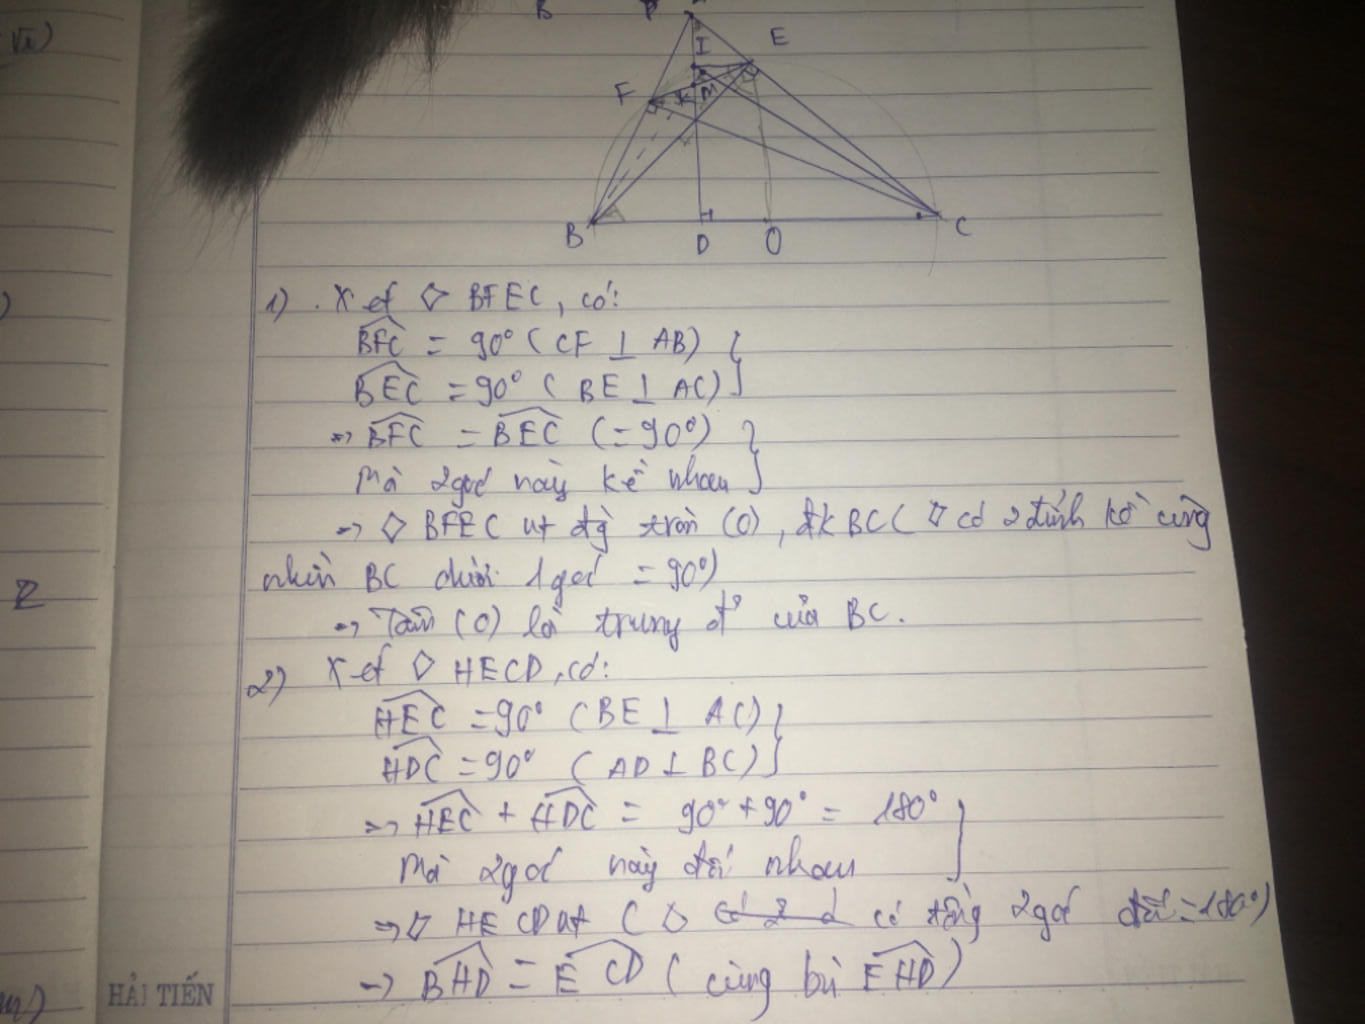 √x)
B
I
E
F
K
M
B
D
O
C
1) . Xét ◇ BFEC, có:
BFC = 90° ( CF ⊥ AB) }
BEC = 90° ( BE ⊥ AC) }
=> BFC = BEC (= 90°) }
Mà 2 góc này kề nhau }
=> ◇ BFEC nt đg tròn (O), đk BC ( ◇ có 2 đỉnh kề cùng
nhìn BC dưới 1 góc = 90°)
=> Tâm (O) là trung đ' của BC.
2
2) Xét ◇ HECD, có:
HEC = 90° (BE ⊥ AC) }
HDC = 90° ( AD ⊥ BC) }
=> HEC + HDC = 90° + 90° = 180° }
Mà 2 góc này đối nhau }
=> ◇ HECD nt ( ◇ có tổng 2 góc đối = 180°)
=> BHD = ECD ( cùng bù EHD)
HẢI TIẾN